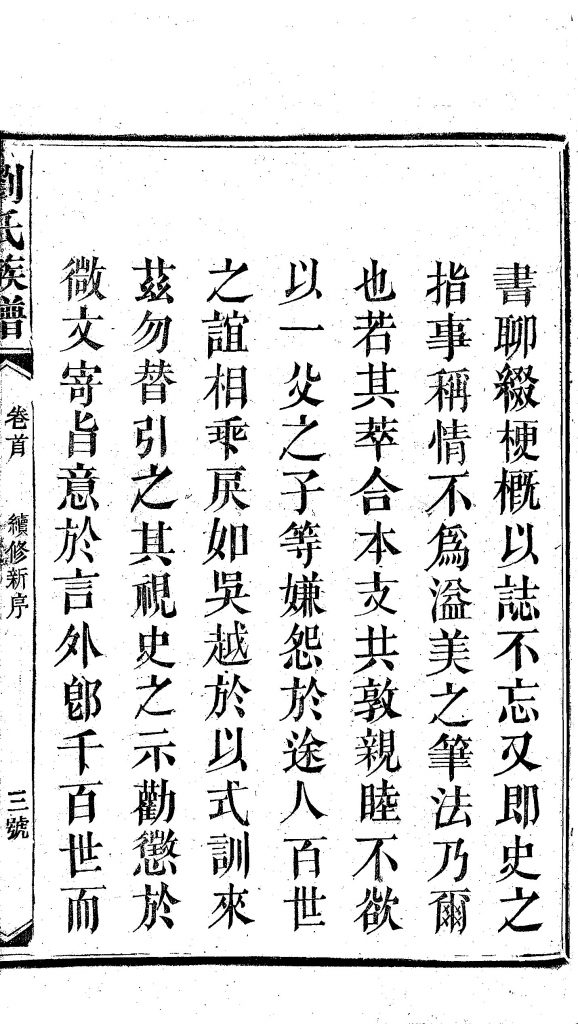 書聊綴梗概以誌不忘又即史之
指事稱情不爲溢美之筆法乃爾
也若其萃合本支共敦親睦不欲
以一父之子等嫌怨於途人百世
之誼相乖戾如吳越於以式訓來
茲勿替引之其視史之示勸懲於
微文寄旨意於言外卽千百世而
劉氏族譜
卷首
續修新序
三號